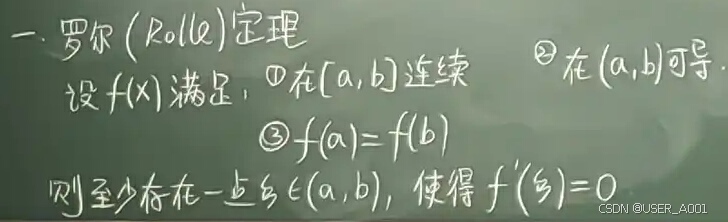 一. 罗尔(Rolle)定理
设f(x)满足, ①在[a,b]连续 ②在(a,b)可导.
③f(a)=f(b)
则至少存在一点ξ∈(a,b), 使得f'(ξ)=0
CSDN @USER_A001